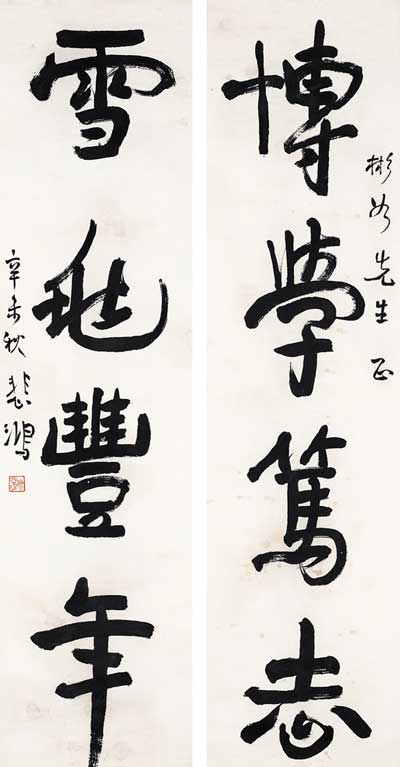 彬如先生正
博學篤志
雪兆豐年
辛未秋悲鴻